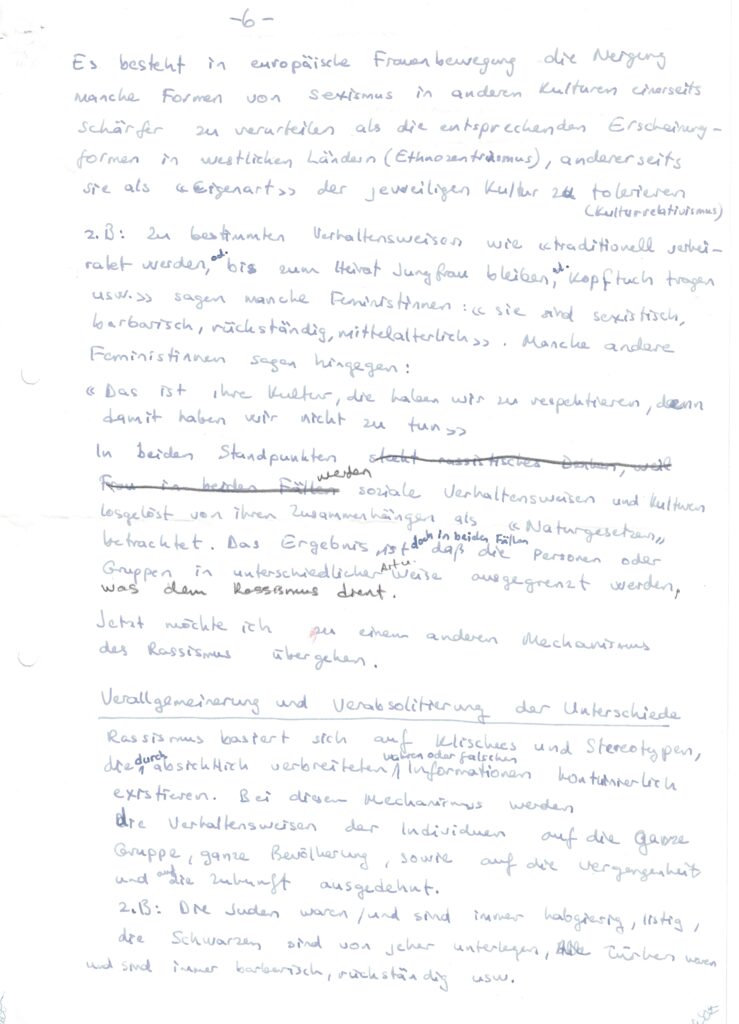 -6-
Es besteht in europäische Frauenbewegung die Neigung
manche Formen von Sexismus in anderen Kulturen einerseits
schärfer zu verurteilen als die entsprechenden Erscheinung-
formen in westlichen Ländern (Ethnozentrismus), andererseits
sie als «Eigenart» der jeweiligen Kultur zu tolerieren
(Kulturrelativismus)
z.B: Zu bestimmten Verhaltensweisen wie «traditionell verhei-
ratet werden, od. bis zum Heirat Jungfrau bleiben, od. Kopftuch tragen
usw.» sagen manche Feministinnen: «sie sind sexistisch,
barbarisch, rückständig, mittelalterlich». Manche andere
Feministinnen sagen hingegen:
«Das ist ihre Kultur, die haben wir zu respektieren, denn
damit haben wir nicht zu tun»
In beiden Standpunkten steckt rassistisches Denken, weil
Frau in beiden Fällen werden soziale Verhaltensweisen und Kulturen
losgelöst von ihren Zusammenhängen als «Naturgesetzen»
betrachtet. Das Ergebnis ist doch in beiden Fällen, daß die Personen oder
Gruppen in unterschiedlicher Art u. Weise ausgegrenzt werden,
was dem Rassismus dient.
Jetzt möchte ich zu einem anderen Mechanismus
des Rassismus übergehen.
Verallgemeinerung und Verabsolitierung der Unterschiede
Rassismus basiert sich auf Klischees und Stereotypen,
die durch absichtlich verbreiteten wahren oder falschen Informationen kontinuierlich
existieren. Bei diesem Mechanismus werden
die Verhaltensweisen der Individuen auf die ganze
Gruppe, ganze Bevölkerung, sowie auf die Vergangenheit
und auf die Zukunft ausgedehnt.
z.B: Die Juden waren/und sind immer habgierig, listig,
die Schwarzen sind von jeher unterlegen, Türken waren
und sind immer barbarisch, rückständig usw.